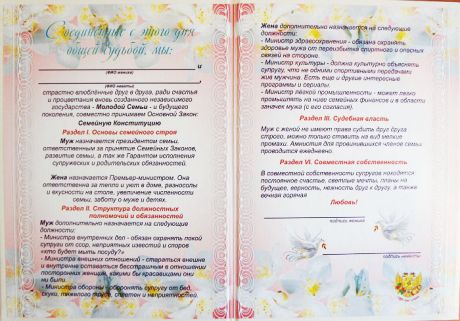 Соединённые с этого дня
общей судьбой, мы:
и
(ФИО жениха)
(ФИО невесты)
страстно влюблённые друг в друга, ради счастья
и процветания вновь созданного независимого
государства - Молодой Семьи - и будущего
поколения, совместно принимаем Основной Закон:
Семейную Конституцию
Раздел I. Основы семейного строя
Муж назначается президентом семьи,
ответственным за принятие Семейных Законов,
развитие семьи, а так же Гарантом исполнения
супружеских и родительских обязанностей.
Жена назначается Премьер-министром. Она
ответственна за тепло и уют в доме, разносолы
и вкусности на столе, увеличение численности
семьи, заботу о муже и детях.
Раздел II. Структура должностных
полномочий и обязанностей
Муж дополнительно назначается на следующие
должности:
- Министра внутренних дел - обязан охранять покой
супруги от ссор, неприятных известий и споров
«кто будет мыть посуду?»
- Министра внешних отношений - стараться внешне
и внутренне оставаться бесстрастным в отношении
посторонних женщин, какими бы красавицами они
ни были.
- Министра обороны - охранять супругу от бед,
скуки, тяжелого труда, сплетен и неприятностей.
Жена дополнительно назначается на следующие
должности:
- Министр здравоохранения - обязана охранять
здоровье мужа от переизбытка спиртного и опасных
связей на стороне.
- Министр культуры - должна культурно объяснять
супругу, что не одними спортивными передачами
жив мужчина. Есть еще и другие интересные
программы и сериалы.
- Министр лёгкой промышленности - может легко
промышлять на ниве семейных финансов и в области
заначек мужа (с его согласия).
Раздел III. Судебная власть
Муж с женой не имеют права судить друг друга
строго, можно только ставить на вид мелкие
промахи. Амнистия для провинившихся членов семьи
проводится ежедневно.
Раздел VI. Совместная собственность
В совместной собственности супругов находится
постоянное счастье, светлые мечты, планы на
будущее, верность, нежность друг к другу, а также
вечная горячая
Любовь!
подпись жениха
подпись невесты